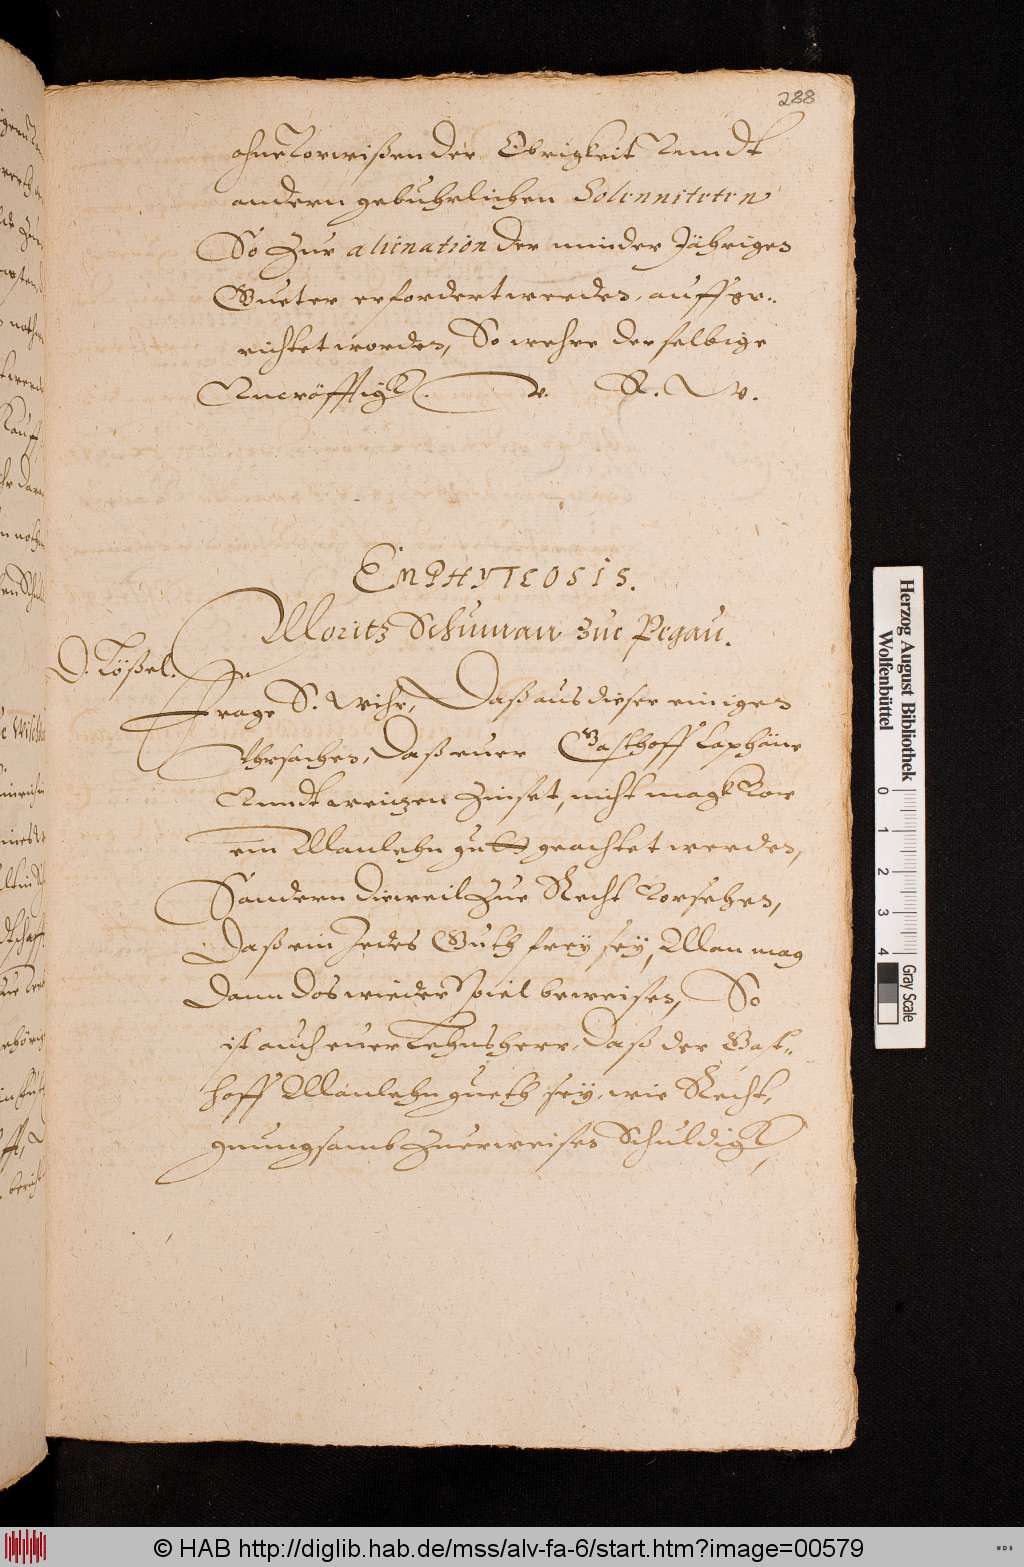 288
ohne Vorwißen der Obrigkeit Vnndt
andern gebuhrlichen Solenniteten
So zur alienation der minder Jährigen
Gueter erfordert werden, auffge-
richtet worden, So wehre derselbige
Vncröfftigk. V. R. W.
EMPHYTEOSIS.
Moritz Schuman zue Pegau.
D. Tößel.
Frage S. wihr, Daß aus dieser einigen
Vhrsachen, Daß euer Gasthoff Caphäne
Vnndt weitzen Zinset, nicht magk Vor
ein Manlehn gutt geachtet werden,
Sondern dieweil Zue Recht Vorsehen,
Daß ein Jedes Guth frey sey, Man mag
dann dos wieder Spiel beweisen, So
ist auch euer Lehnsherr, Daß der Gast-
hoff Manlehn gueth sey, wie Recht,
gnungsamb Zuerweisen Schuldigk,
Herzog August Bibliothek
Wolfenbüttel
0 1 2 3 4
Gray Scale
© HAB http://diglib.hab.de/mss/alv-fa-6/start.htm?image=00579
WDB